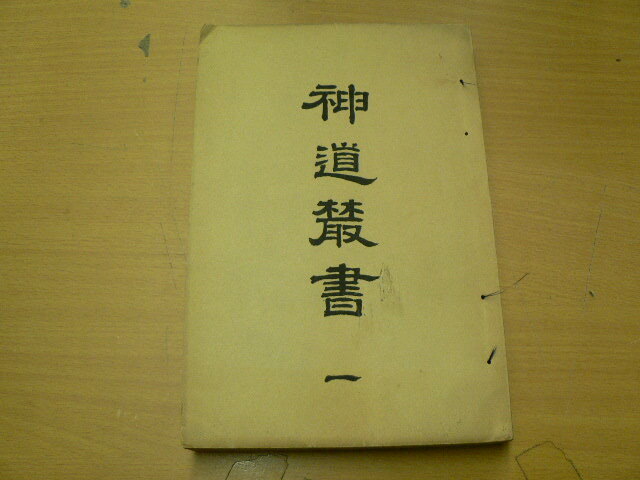 神道叢書 一